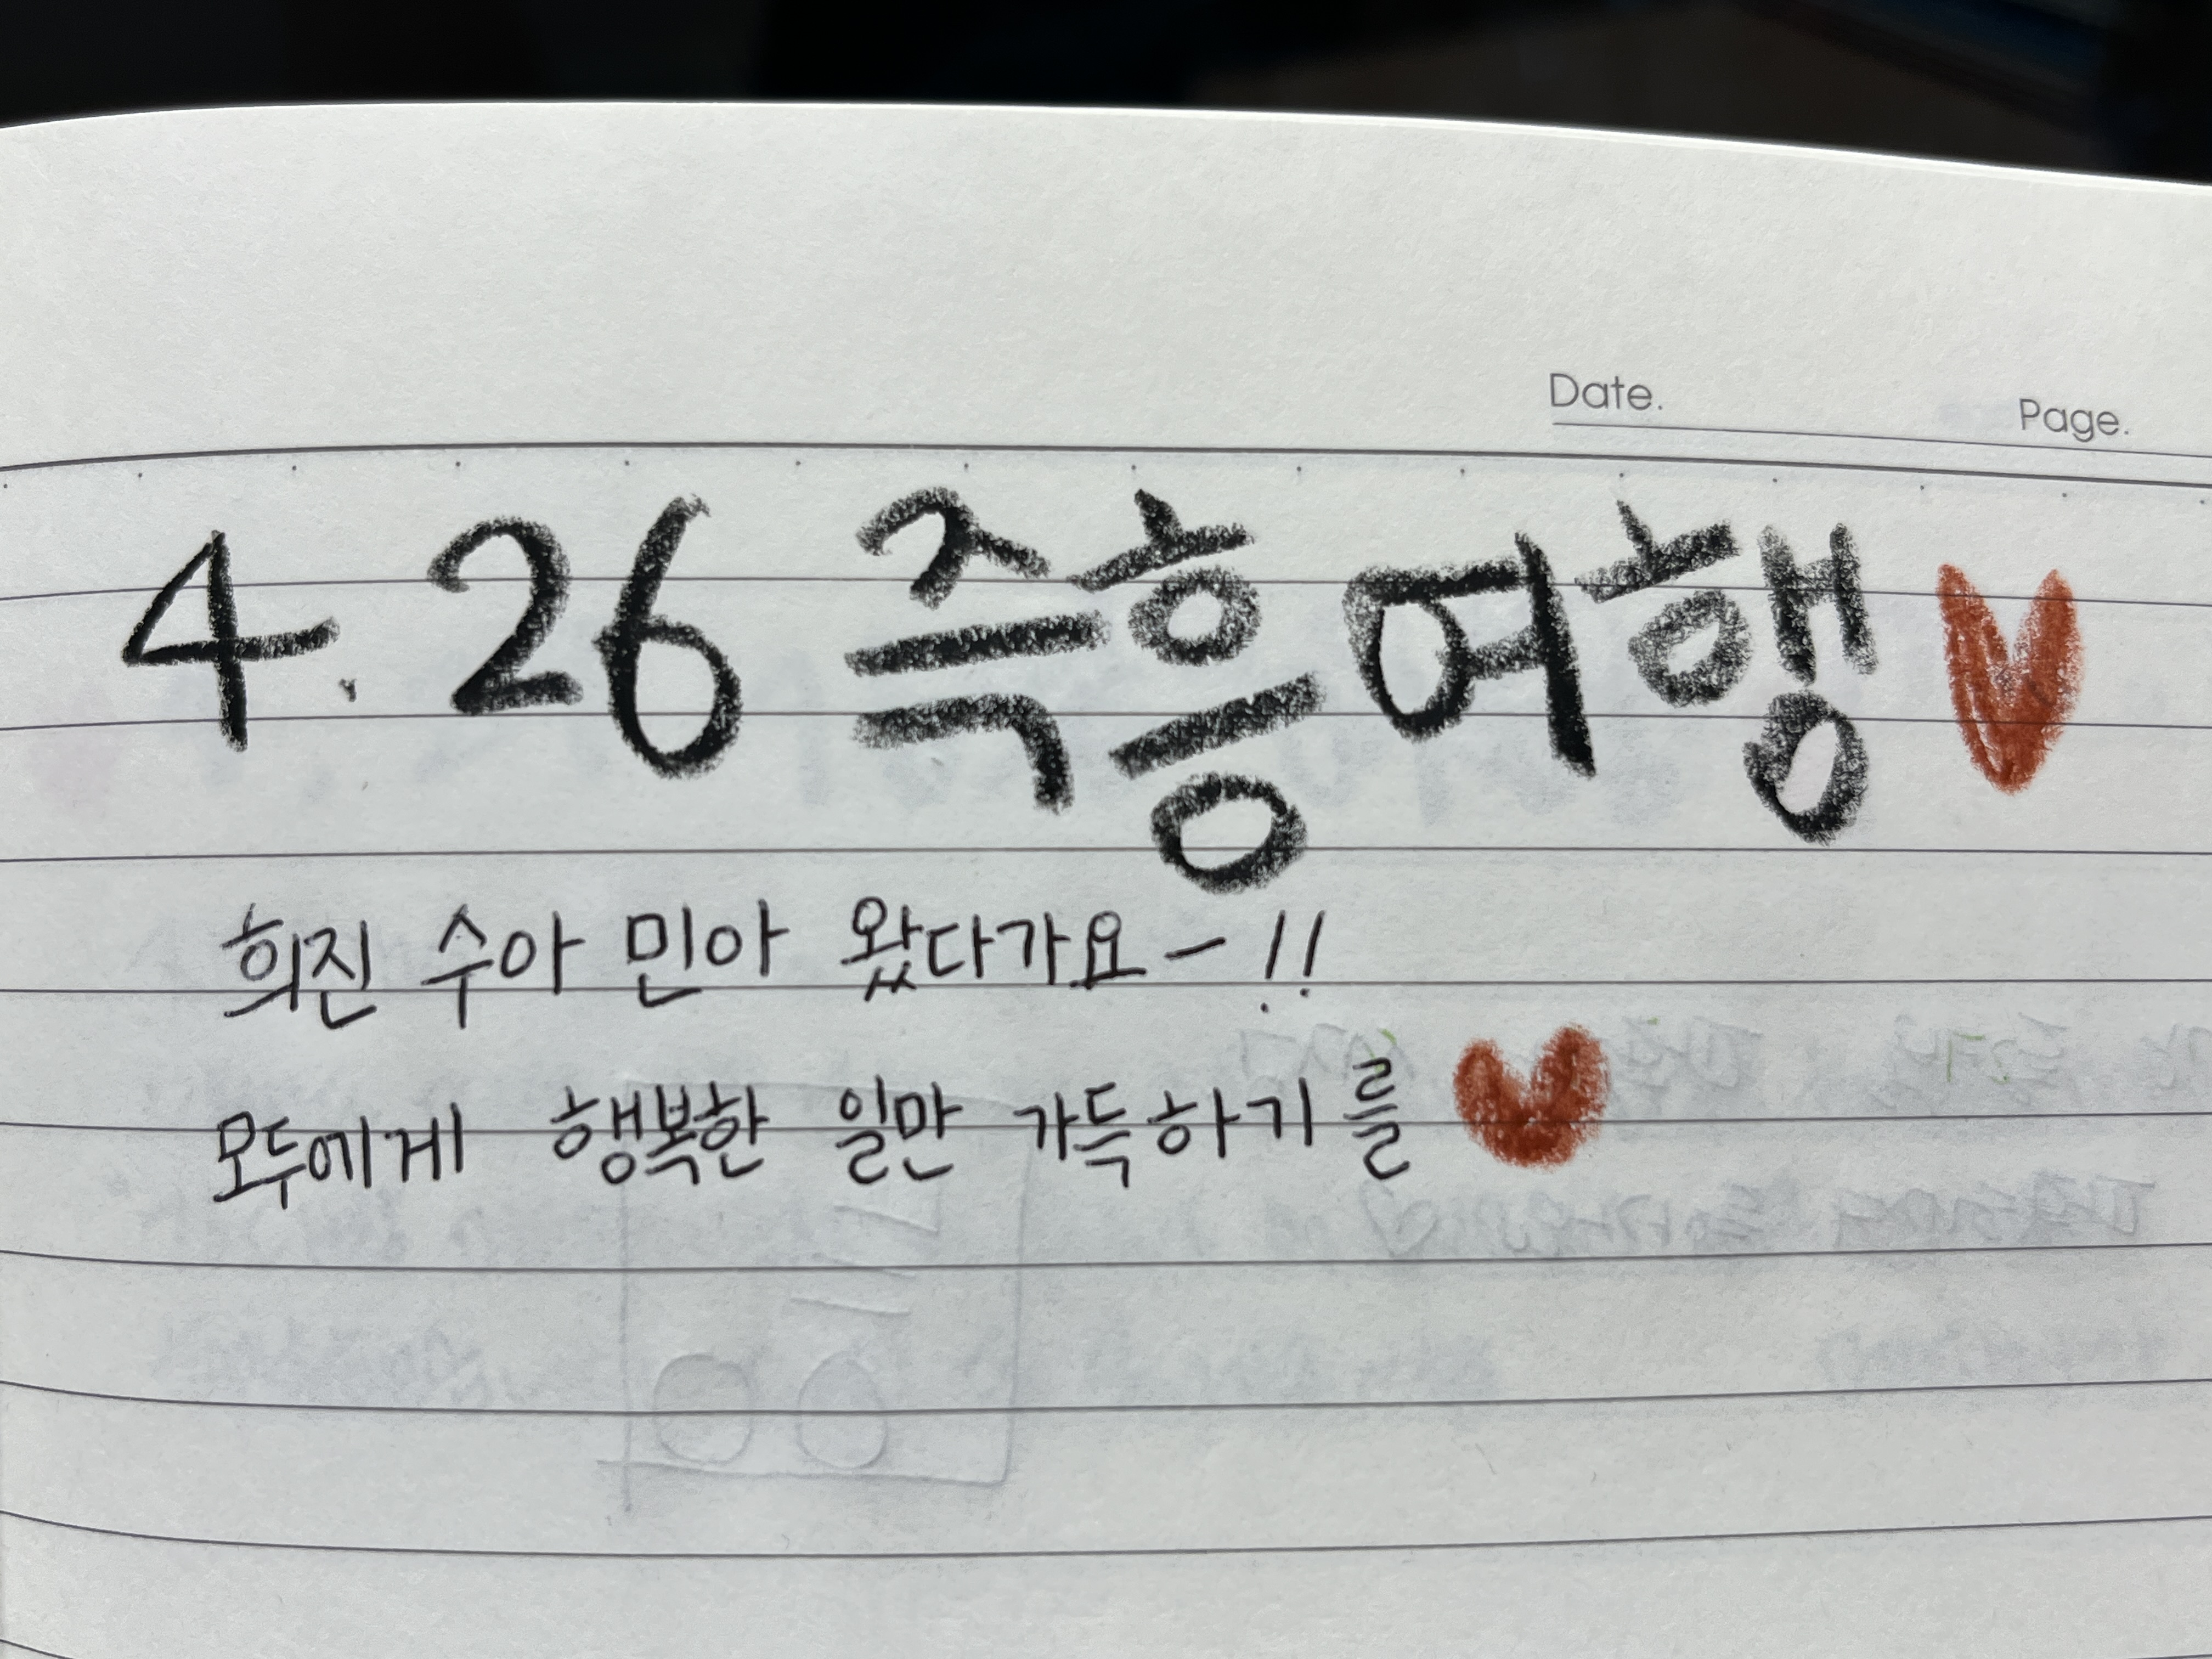 Date. Page.
4. 26 즉흥여행♥
희진 수아 민아 왔다가요-!!
모두에게 행복한 일만 가득하기를♥